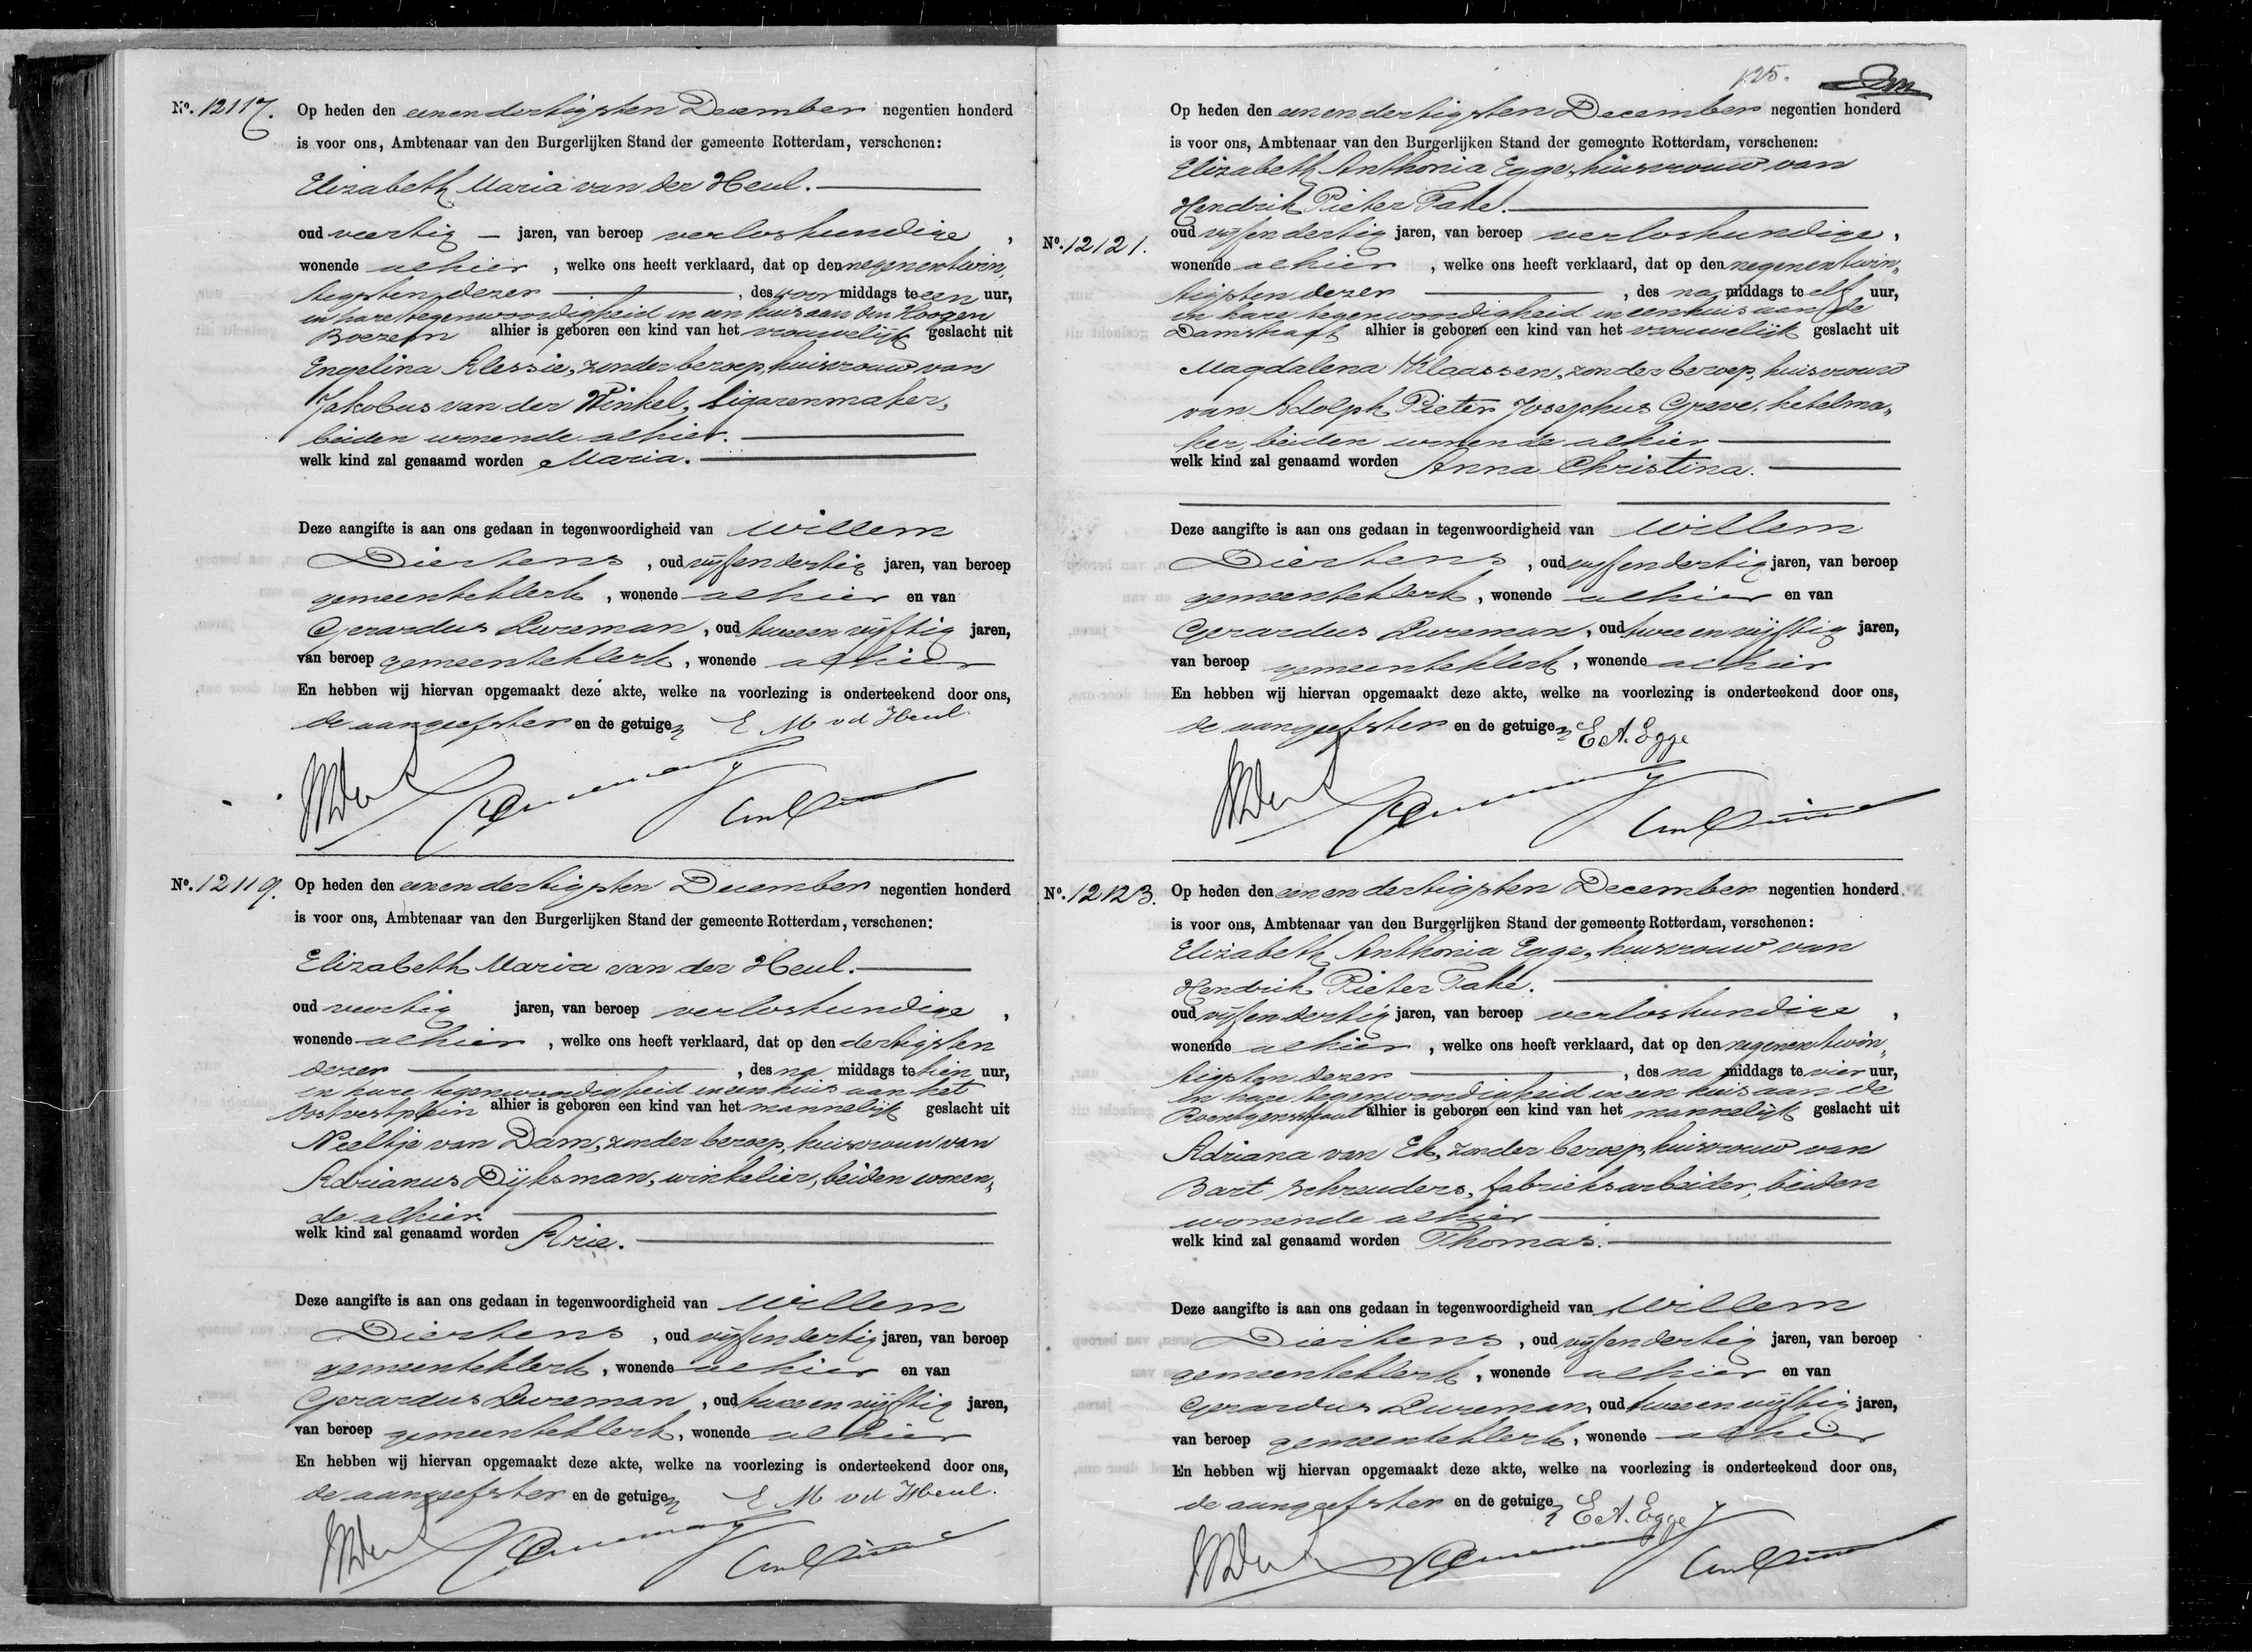 No. 12117. Op heden den eenendertigsten December negentien honderd
is voor ons, Ambtenaar van den Burgerlijken Stand der gemeente Rotterdam, verschenen:
Elizabeth Maria van der Heul.
oud veertig jaren, van beroep verloskundige,
wonende alhier, welke ons heeft verklaard, dat op den negenentwin„
tigsten dezer, des voormiddags te een uur,
in hare tegenwoordigheid in een huis aan den Hoogen
Boezem alhier is geboren een kind van het vrouwelijk geslacht uit
Engelina Klessie, zonder beroep, huisvrouw van
Jakobus van der Winkel, sigarenmaker,
beiden wonende alhier.
welk kind zal genaamd worden Maria.
Deze aangifte is aan ons gedaan in tegenwoordigheid van Willem
Diertens, oud vijfendertig jaren, van beroep
gemeenteklerk, wonende alhier en van
Gerardus Lureman, oud tweeenvijftig jaren,
van beroep gemeenteklerk, wonende alhier
En hebben wij hiervan opgemaakt deze akte, welke na voorlezing is onderteekend door ons,
de aangeefster en de getuigen E M vd Heul
No. 12119. Op heden den eenendertigsten December negentien honderd
is voor ons, Ambtenaar van den Burgerlijken Stand der gemeente Rotterdam, verschenen:
Elizabeth Maria van der Heul.
oud veertig jaren, van beroep verloskundige,
wonende alhier, welke ons heeft verklaard, dat op den dertigsten
dezer, des namiddags te tien uur,
in hare tegenwoordigheid in een huis aan het
Oostvestplein alhier is geboren een kind van het mannelijk geslacht uit
Neeltje van Dam, zonder beroep, huisvrouw van
Adrianus Dijksman, winkelier, beiden wonen„
de alhier
welk kind zal genaamd worden Arie.
Deze aangifte is aan ons gedaan in tegenwoordigheid van Willem
Diertens, oud vijfendertig jaren, van beroep
gemeenteklerk, wonende alhier en van
Gerardus Lureman, oud tweeenvijftig jaren,
van beroep gemeenteklerk, wonende alhier
En hebben wij hiervan opgemaakt deze akte, welke na voorlezing is onderteekend door ons,
de aangeefster en de getuigen E M vd Heul.
125.
Op heden den eenendertigsten December negentien honderd
is voor ons, Ambtenaar van den Burgerlijken Stand der gemeente Rotterdam, verschenen:
Elizabeth Anthonia Egge, huisvrouw van
Hendrik Pieter Take.
No. 12121. oud vijfendertig jaren, van beroep verloskundige,
wonende alhier, welke ons heeft verklaard, dat op den negenentwin„
tigsten dezer, des namiddags te elf uur,
in hare tegenwoordigheid in een huis aan de
Damstraat alhier is geboren een kind van het vrouwelijk geslacht uit
Magdalena Klaassen, zonder beroep, huisvrouw
van Adolph Pieter Josephus Greve, ketelma„
ker, beiden wonende alhier
welk kind zal genaamd worden Anna Christina.
Deze aangifte is aan ons gedaan in tegenwoordigheid van Willem
Diertens, oud vijfendertig jaren, van beroep
gemeenteklerk, wonende alhier en van
Gerardus Lureman, oud tweeenvijftig jaren,
van beroep gemeenteklerk, wonende alhier
En hebben wij hiervan opgemaakt deze akte, welke na voorlezing is onderteekend door ons,
de aangeefster en de getuigen E A. Egge
No. 12123. Op heden den eenendertigsten December negentien honderd
is voor ons, Ambtenaar van den Burgerlijken Stand der gemeente Rotterdam, verschenen:
Elizabeth Anthonia Egge, huisvrouw van
Hendrik Pieter Take.
oud vijfendertig jaren, van beroep verloskundige,
wonende alhier, welke ons heeft verklaard, dat op den negenentwin„
tigsten dezer, des namiddags te vier uur,
in hare tegenwoordigheid in een huis aan de
Roentgenstraat alhier is geboren een kind van het mannelijk geslacht uit
Adriana van Ek, zonder beroep, huisvrouw van
Bart Schreuders, fabrieksarbeider, beiden
wonende alhier
welk kind zal genaamd worden Thomas.
Deze aangifte is aan ons gedaan in tegenwoordigheid van Willem
Diertens, oud vijfendertig jaren, van beroep
gemeenteklerk, wonende alhier en van
Gerardus Lureman, oud tweeenvijftig jaren,
van beroep gemeenteklerk, wonende alhier
En hebben wij hiervan opgemaakt deze akte, welke na voorlezing is onderteekend door ons,
de aangeefster en de getuigen E A. Egge